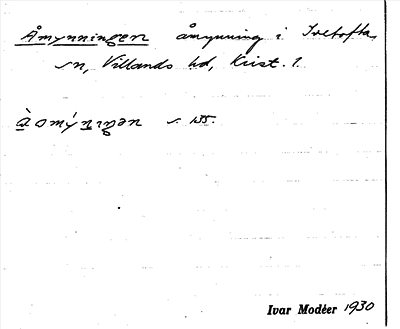 Åmynningen åmynning i Ivetofta
sn, Villands hd, Krist. l.
àomýniŋən s. 135.
Ivar Modéer 1930